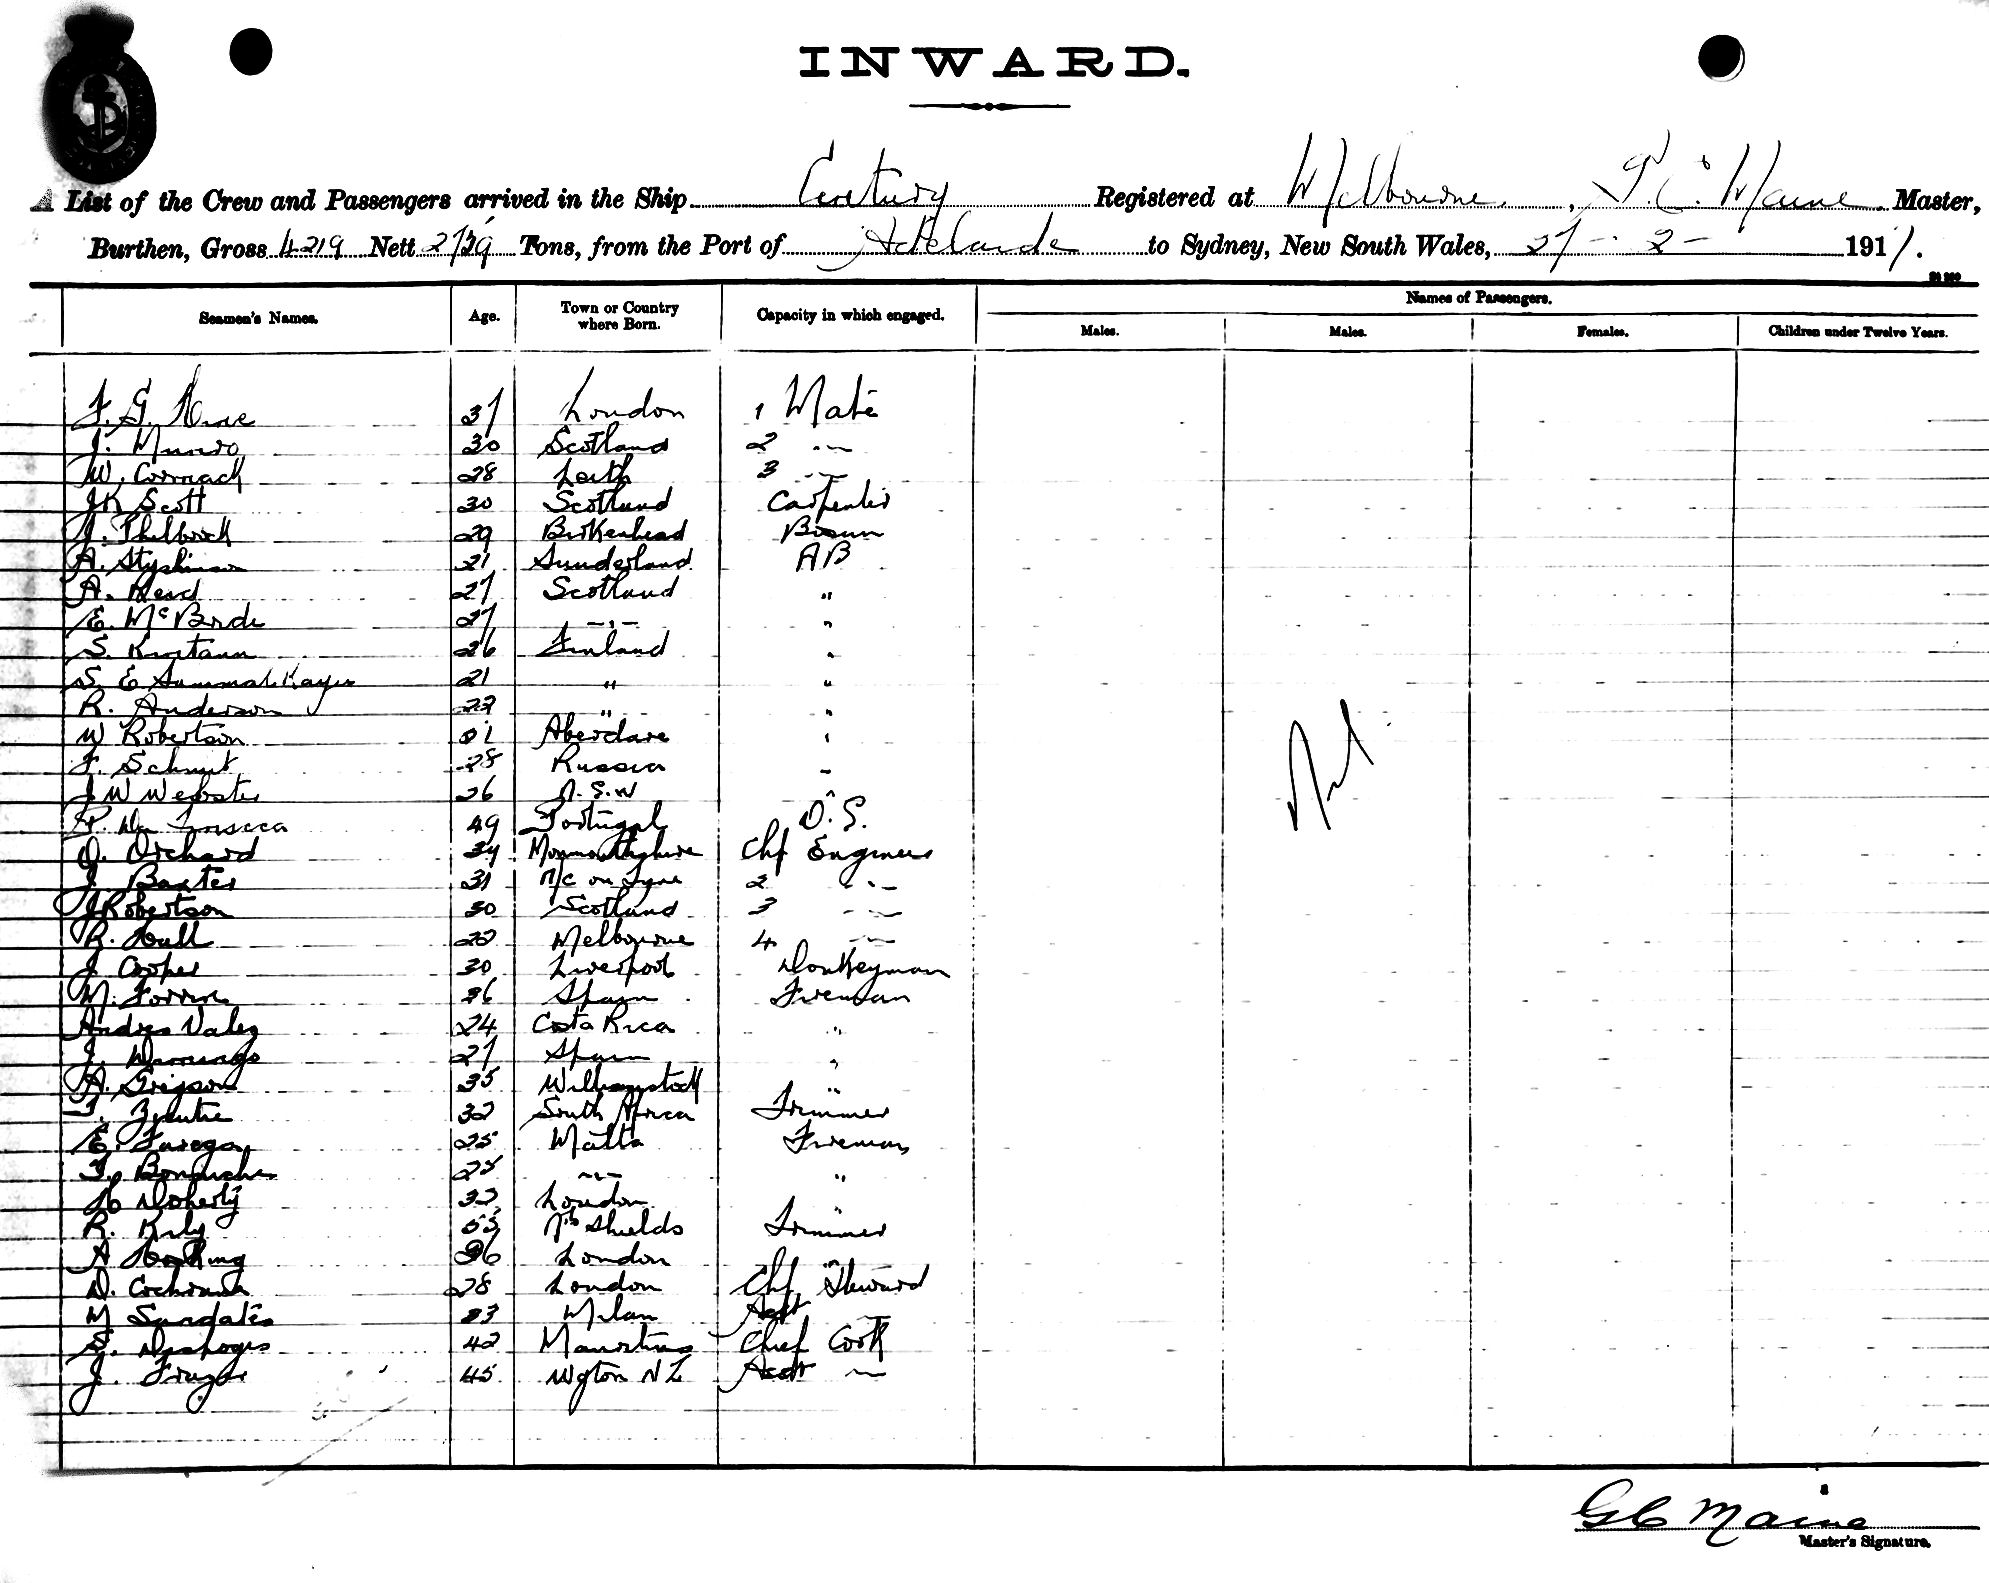 INWARD.
A List of the Crew and Passengers arrived in the Ship Century Registered at Melbourne, G. C. Maine Master,
Burthen, Gross 4219 Nett 2739 Tons, from the Port of Adelaide to Sydney, New South Wales, 27 - 2 - 1911.
Seamen's Names. Age. Town or Country where Born. Capacity in which engaged. Names of Passengers.
Males. Males. Females. Children under Twelve Years.
F. G. 37 London 1 Mate
J. Munro 30 Scotland 2 -"-
W. Cormack 28 Leith 3 -"-
J K Scott 30 Scotland Carpenter
J. Philbrick 29 Birkenhead Bosun
A. 21 Sunderland AB
A. Reid 27 Scotland "
E. McBride 27 -"- "
S. 26 Finland "
S. E 21 " "
R. Anderson 22 " "
W Robertson Aberdare "
F. Schmit 28 Russia "
J W Webster 26 N.S.W "
P. Da Fonseca 49 Portugal O.S.
O. Orchard 34 Monmouthshire Chf Engineer
J. Baxter 31 N/C on Tyne 2 -"-
J Robertson 30 Scotland 3 -"-
R. Hall 22 Melbourne 4 -"-
J Cooper 30 Liverpool Donkeyman
M. 26 Spain Fireman
Andres Valez 24 Costa Rica "
J. Domingo 27 Spain "
A. Grigson 35 Williamstown "
32 South Africa Trimmer
E. Farega 25 Malta Fireman
25 -"- "
H Doherty 32 London "
R. 55 Nth Shields Trimmer
A Hocking 36 London "
D. Cochrane 28 London Chf Steward
M 33 Milan Asst
S. 42 Mauritius Chief Cook
J. Frazer 45 Wgton NZ Asst -"-
Nil.
G C Maine
Master's Signature.